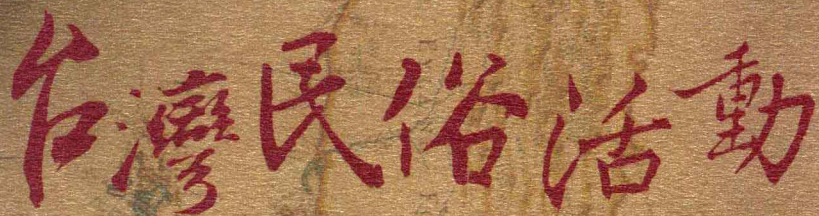 台灣民俗活動